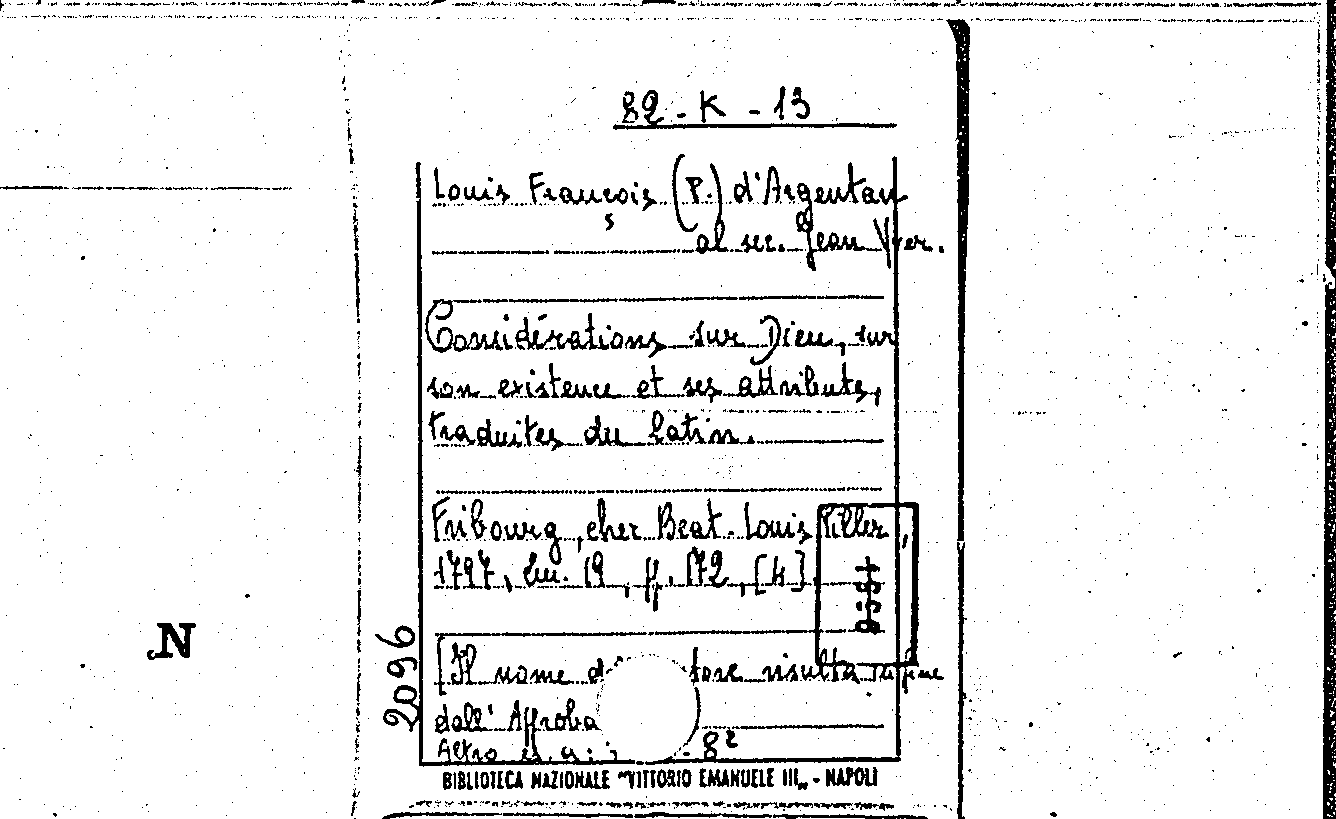 82 - K - 13
Louis François (P.) d'Argentan
al sec. Jean Yver.
Considérations sur Dieu, sur
son existence et ses attributs,
traduites du latin.
Fribourg, chez Beat. Louis Piller,
1797, cm. 19, pp. 172, [4].
[Il nome d tore risulta in fine
dall' Approba
Altro - 8º
2096
N
BIBLIOTECA NAZIONALE "VITTORIO EMANUELE III" - NAPOLI